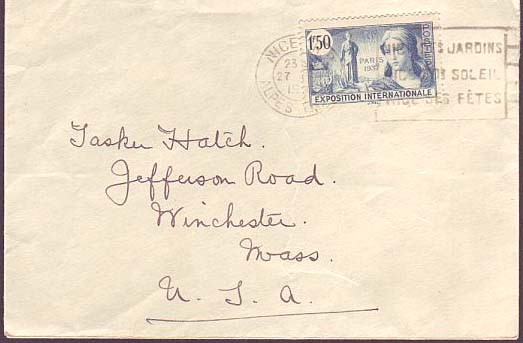 NICE
23
27
19
ALPES
1F50
POSTES
PARIS
1937
EXPOSITION INTERNATIONALE
JARDINS
SOLEIL
DES FÊTES
Tasker Hatch.
Jefferson Road.
Winchester.
Mass.
U. S. A.